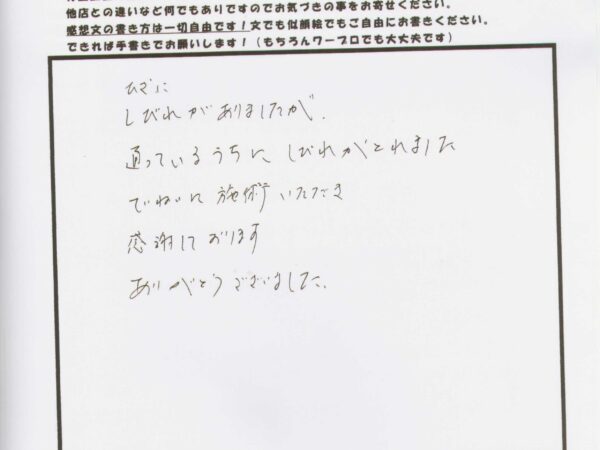 他店との違いなど何でもありですのでお気づきの事をお寄せください。
感想文の書き方は一切自由です！文でも似顔絵でもご自由にお書きください。
できれば手書きでお願いします！（もちろんワープロでも大丈夫です）
ひざに
しびれがありましたが、
通っているうちに しびれがとれました
ていねいに 施術 いただき
感謝して おります
ありがとうございました。